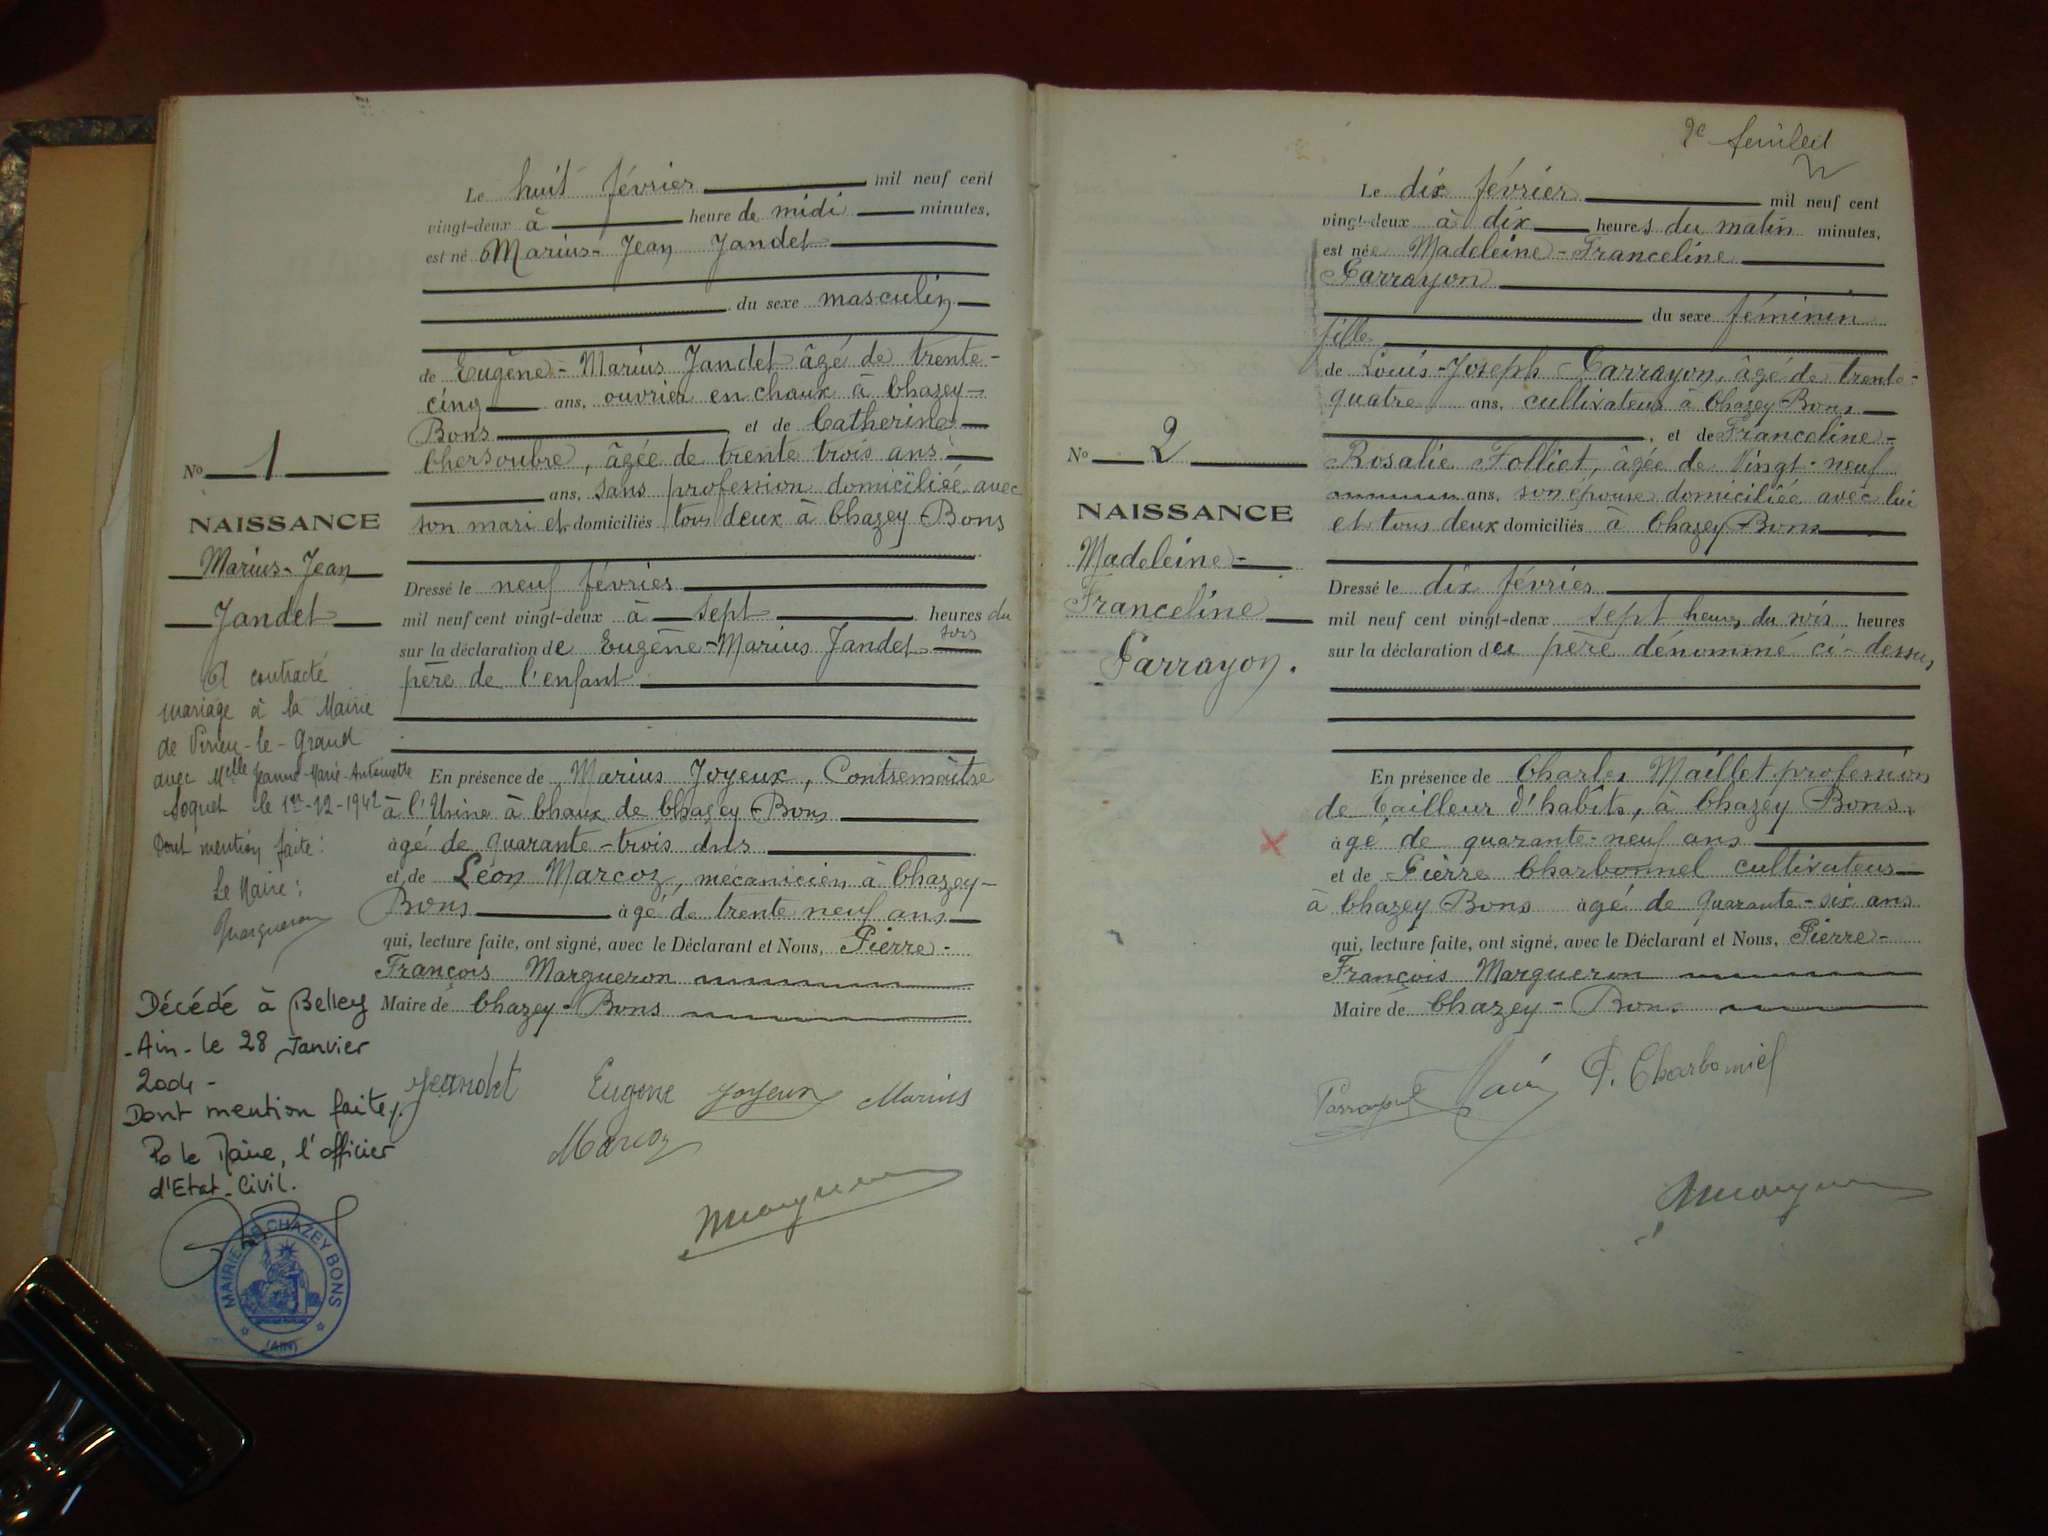 Le huit février mil neuf cent
vingt-deux à heure de midi minutes,
est né Marius-Jean Jandet
du sexe masculin
de Eugène-Marius Jandet âgé de trente-
cinq ans, ouvrier en chaux à Chazey-
Bons et de Catherine
Chersoubre, âgée de trente trois ans
ans, sans profession domiciliée avec
son mari et domiciliés tous deux à Chazey-Bons
Dressé le neuf février
mil neuf cent vingt-deux à sept heures du
soir
sur la déclaration de Eugène-Marius Jandet
père de l'enfant
En présence de Marius Joyeux, Contremaître
à l'Usine à Chaux de Chazey-Bons
âgé de quarante-trois ans
et de Léon Marcoz, mécanicien à Chazey-
Bons âgé de trente neuf ans
qui, lecture faite, ont signé, avec le Déclarant et Nous, Pierre-
François Margueron
Maire de Chazey-Bons
Jeandet Eugène Joyeux Marius
Marcoz
Margueron
No 1
NAISSANCE
Marius-Jean
Jandet
A contracté
mariage à la Mairie
de Virieu-le-Grand
avec Melle Jeanne-Marie-Antoinette
Soquet le 1er-12-1942
Dont mention faite:
Le Maire:
Margueron
Décédé à Belley
-Ain- le 28 Janvier
2004 -
Dont mention faite,
Po le Maire, l'officier
d'Etat-Civil.
MAIRIE DE CHAZEY BONS
(AIN)
2e feuillet
Le dix février mil neuf cent
vingt-deux à dix heures du matin minutes,
est née Madeleine-Franceline
Parrayon
du sexe féminin
fille
de Louis-Joseph Parrayon, âgé de trente-
quatre ans, cultivateur à Chazey-Bons
, et de Franceline-
Rosalie Folliet, âgée de vingt-neuf
ans, son épouse domiciliée avec lui
et tous deux domiciliés à Chazey-Bons
Dressé le dix février
mil neuf cent vingt-deux sept heures du soir heures
sur la déclaration du père dénommé ci-dessus
En présence de Charles Maillet profession
de tailleur d'habits, à Chazey-Bons,
âgé de quarante-neuf ans
et de Pierre Charbonnel cultivateur
à Chazey-Bons âgé de quarante-six ans
qui, lecture faite, ont signé, avec le Déclarant et Nous, Pierre-
François Margueron
Maire de Chazey-Bons
P. Charbonnel
Margueron
No 2
NAISSANCE
Madeleine-
Franceline
Parrayon.